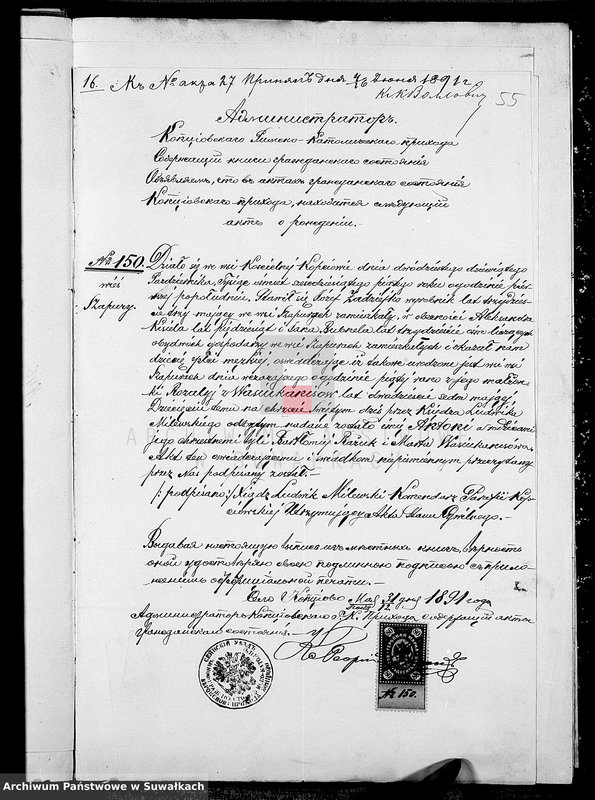 16. Къ № акта 27 Принятъ дня 4/16 Июня 1891 г.
К. К. Воллович
55
Администраторъ
Копціовскаго Римско-Католическаго прихода
Содержащій книги гражданскаго состоянія
Объявляетъ, что въ актахъ гражданскаго состоянія
Копціовскаго прихода, находится слѣдующій
актъ о рожденіи.
№ 150.
wieś
Szapury.
Działo się we wsi Kościelnej Kopciowi dnia dwódziestego dziewiątego
Października, tysiąc ośmset sześćdziesiątego piątego roku o godzinie pier
wszej popołudniu. Stawił się Józef wyrobnik lat trzydzieś
cie trzy mający we wsi Szapurach zamieszkały, w obecności Aleksandra
Kisiela lat pięćdziesiąt i Jana lat trzydzieście ośm liczących
obydwóch gospodarzy we wsi Szapurach zamieszkałych i okazał nam
dziecię płci męzkiej, oświadczając iż takowe urodzone jest we wsi
Szapurach dnia wczorajszego o godzinie piątej rano z jego małżon
ki Rozalij z Wasiukaniсów lat dwadzieścia siedm mającej
Dziecięciu temu na chrzcie świętym dziś przez Księdza Ludwika
Milewskiego odbytym nadane zostało imię Antoni a rodzicami
jego chrzestnemi byli Bartłomiej i Marta Wasiukaniсówa.
Akt ten oświadczającemu i świadkom niepiśmiennym przeczytany
przez Nas podpisany został.—
/: podpisano:/ Xiądz Ludwik Milewski Komendarz Parafii Kop
ciowskiej Utrzymujący Akta Stanu Cywilnego.—
Выдавая настоящую выпись изъ мѣстныхъ книгъ, вѣрность
оной удостовѣряю своею подлинною подписью съ прило
женіемъ оффиціальной печати.—
Село Копціово Мая 31 дня 1891 года
Іюня 12
Администраторъ Копціовскаго Р. К. Прихода содержащій акты
гражданскаго состоянія.—
№ 150.
ARCHIWUM PAŃSTWOWE
W SUWAŁKACH
Archiwum Państwowe w Suwałkach